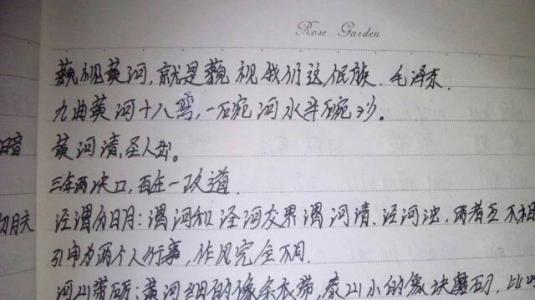 Rose Garden
藐视黄河,就是藐视我们这个民族. 毛泽东.
九曲黄河十八弯,一碗河水半碗沙。
黄河清,圣人出。
三年两决口,百年一改道.
泾渭分明:渭河和泾河交界渭河清.泾河浊,两者互不相
引申为两个人行事,作风完全不同.
河山带砺:黄河细的像条衣带,泰山小的像块磨刀.比